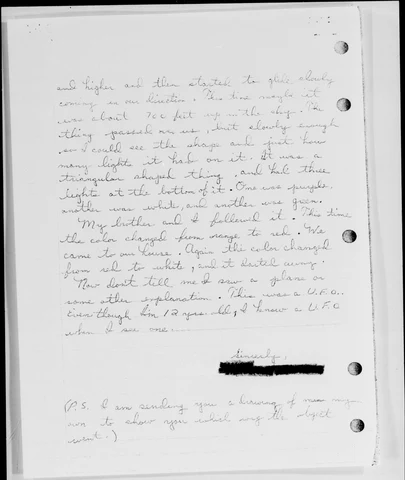 and higher and then started to glide slowly
coming in our direction. This time maybe it
was about 700 feet up in the sky. The
thing passed us, but slowly enough
so I could see the shape and just how
many lights it had on it. It was a
triangular shaped thing, and had three
lights at the bottom of it. One was purple,
another was white, and another was green.
My brother and I followed it. This time
the color changed from orange to red. We
came to our house. Again the color changed
from red to white, and it darted away.
Now don't tell me I saw a plane or
some other explanation. This was a U.F.O..
Even though I'm 12 yrs. old, I know a U.F.O
when I see one.
Sincerely,
(P.S. I am sending you a drawing of
to show you which way the object
went.)